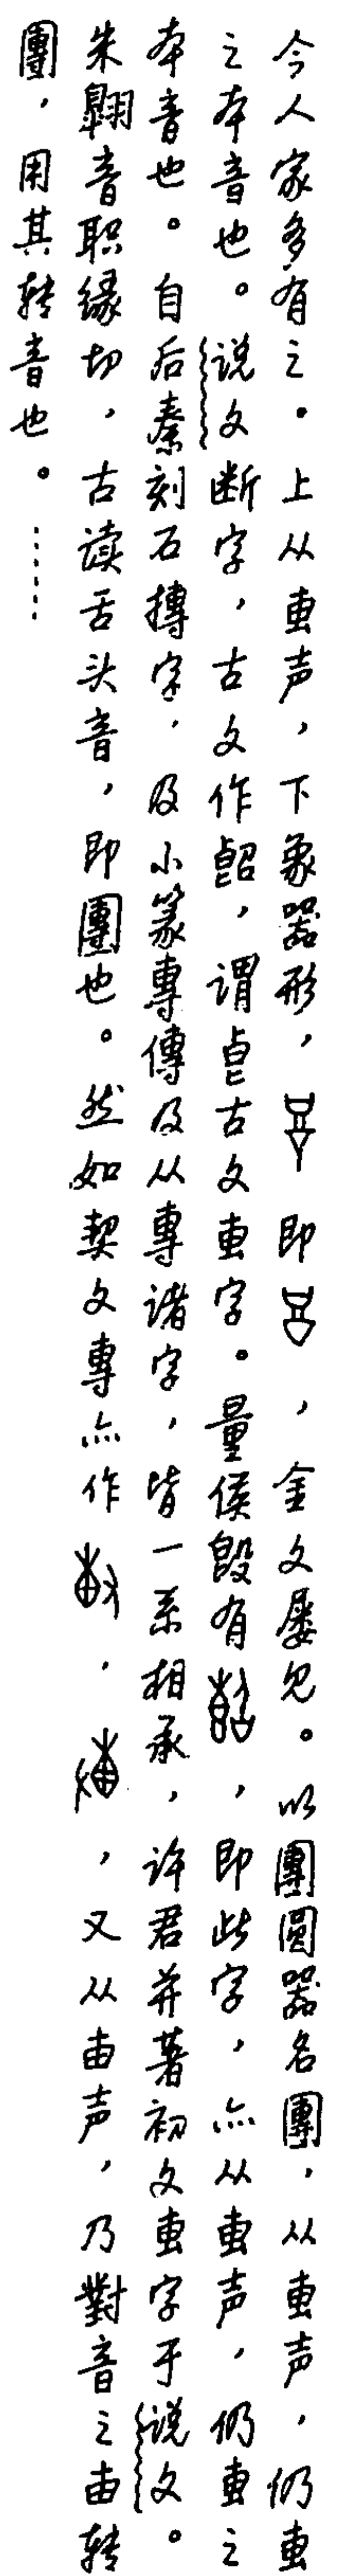 今人家多有之。上从叀声，下象器形，即，金文屡见。以團圆器名團，从叀声，仍叀
之本音也。说文断字，古文作㫁，谓𠧢古文叀字。量侯𣪘有，即此字，亦从叀声，仍叀之
本音也。自后秦刻石摶字，及小篆專傳及从專诸字，皆一系相承，许君并著初文叀字于说文。
朱翱音职缘切，古读舌头音，即團也。然如契文專亦作，，又从由声，乃對音之由转
團，用其转音也。……